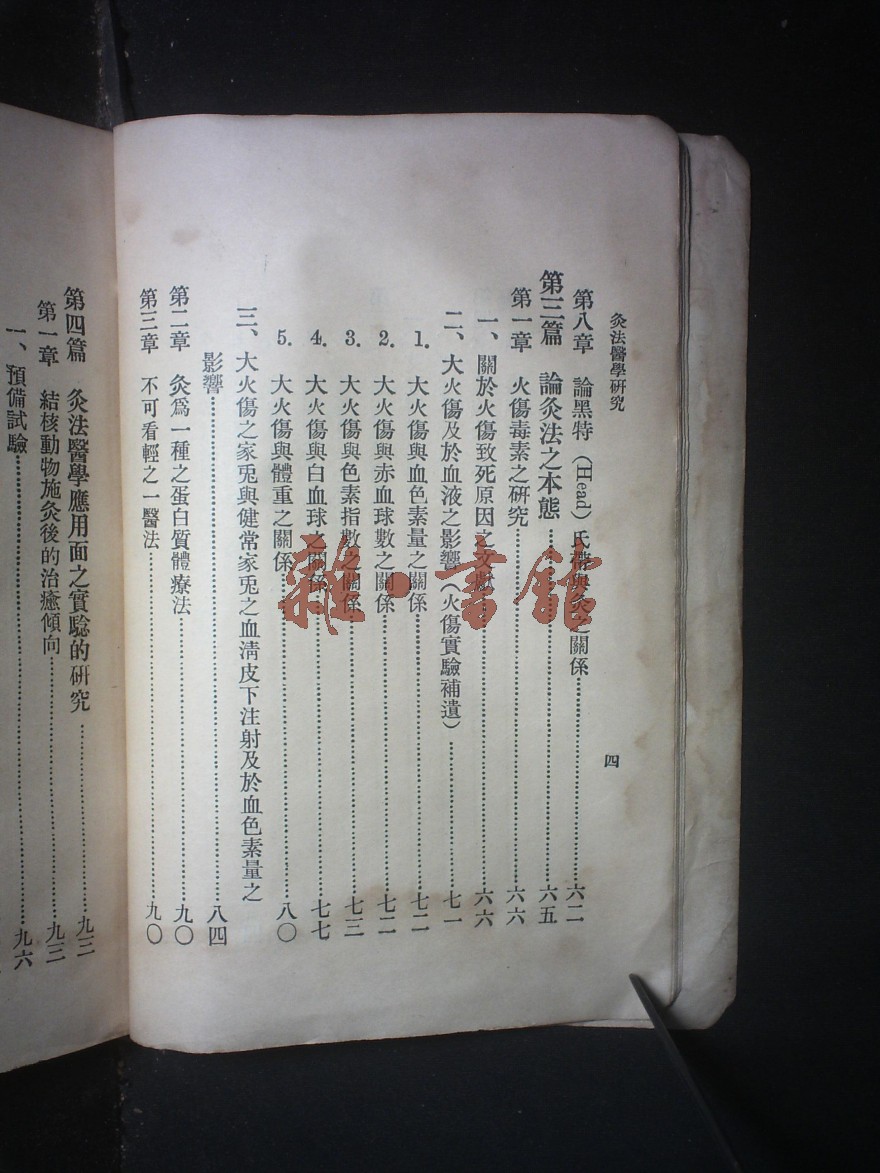 灸法醫學研究
四
第八章 論黑特（Head）氏帶與灸之關係……六二
第三篇 論灸法之本態……六五
第一章 火傷毒素之研究……六六
一、關於火傷致死原因之文獻……六六
二、大火傷及於血液之影響（火傷實驗補遺）……七一
1. 大火傷與血色素量之關係……七二
2. 大火傷與赤血球數之關係……七二
3. 大火傷與色素指數之關係……七三
4. 大火傷與白血球之關係……七七
5. 大火傷與體重之關係……八〇
三、大火傷之家兎與健常家兎之血清皮下注射及於血色素量之
影響……八四
第二章 灸爲一種之蛋白質體療法……九〇
第三章 不可看輕之一醫法……九〇
第四篇 灸法醫學應用面之實驗的研究……九三
第一章 結核動物施灸後的治癒傾向……九三
一、預備試驗……九六
雜·書館